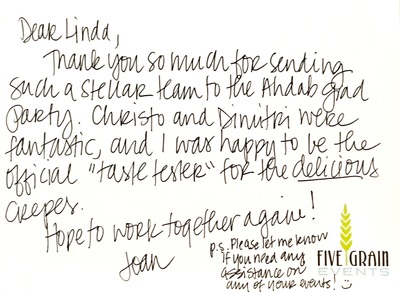 Dear Linda,
Thank you so much for sending
such a stellar team to the Ahdab grad
party. Christo and Dimitri were
fantastic, and I was happy to be the
official "taste tester" for the delicious
crepes.
Hope to work together again!
Joan
p.s. Please let me know
if you need any
assistance on
any of your events!
FIVE GRAIN
EVENTS